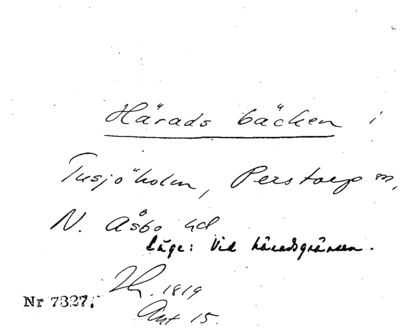 Härads bäcken i
Tusjöholm, Perstorp m,
N. Åsbo hd
läge: Vid häradsgränsen.
1819
Nr 7327.
Ant 15.